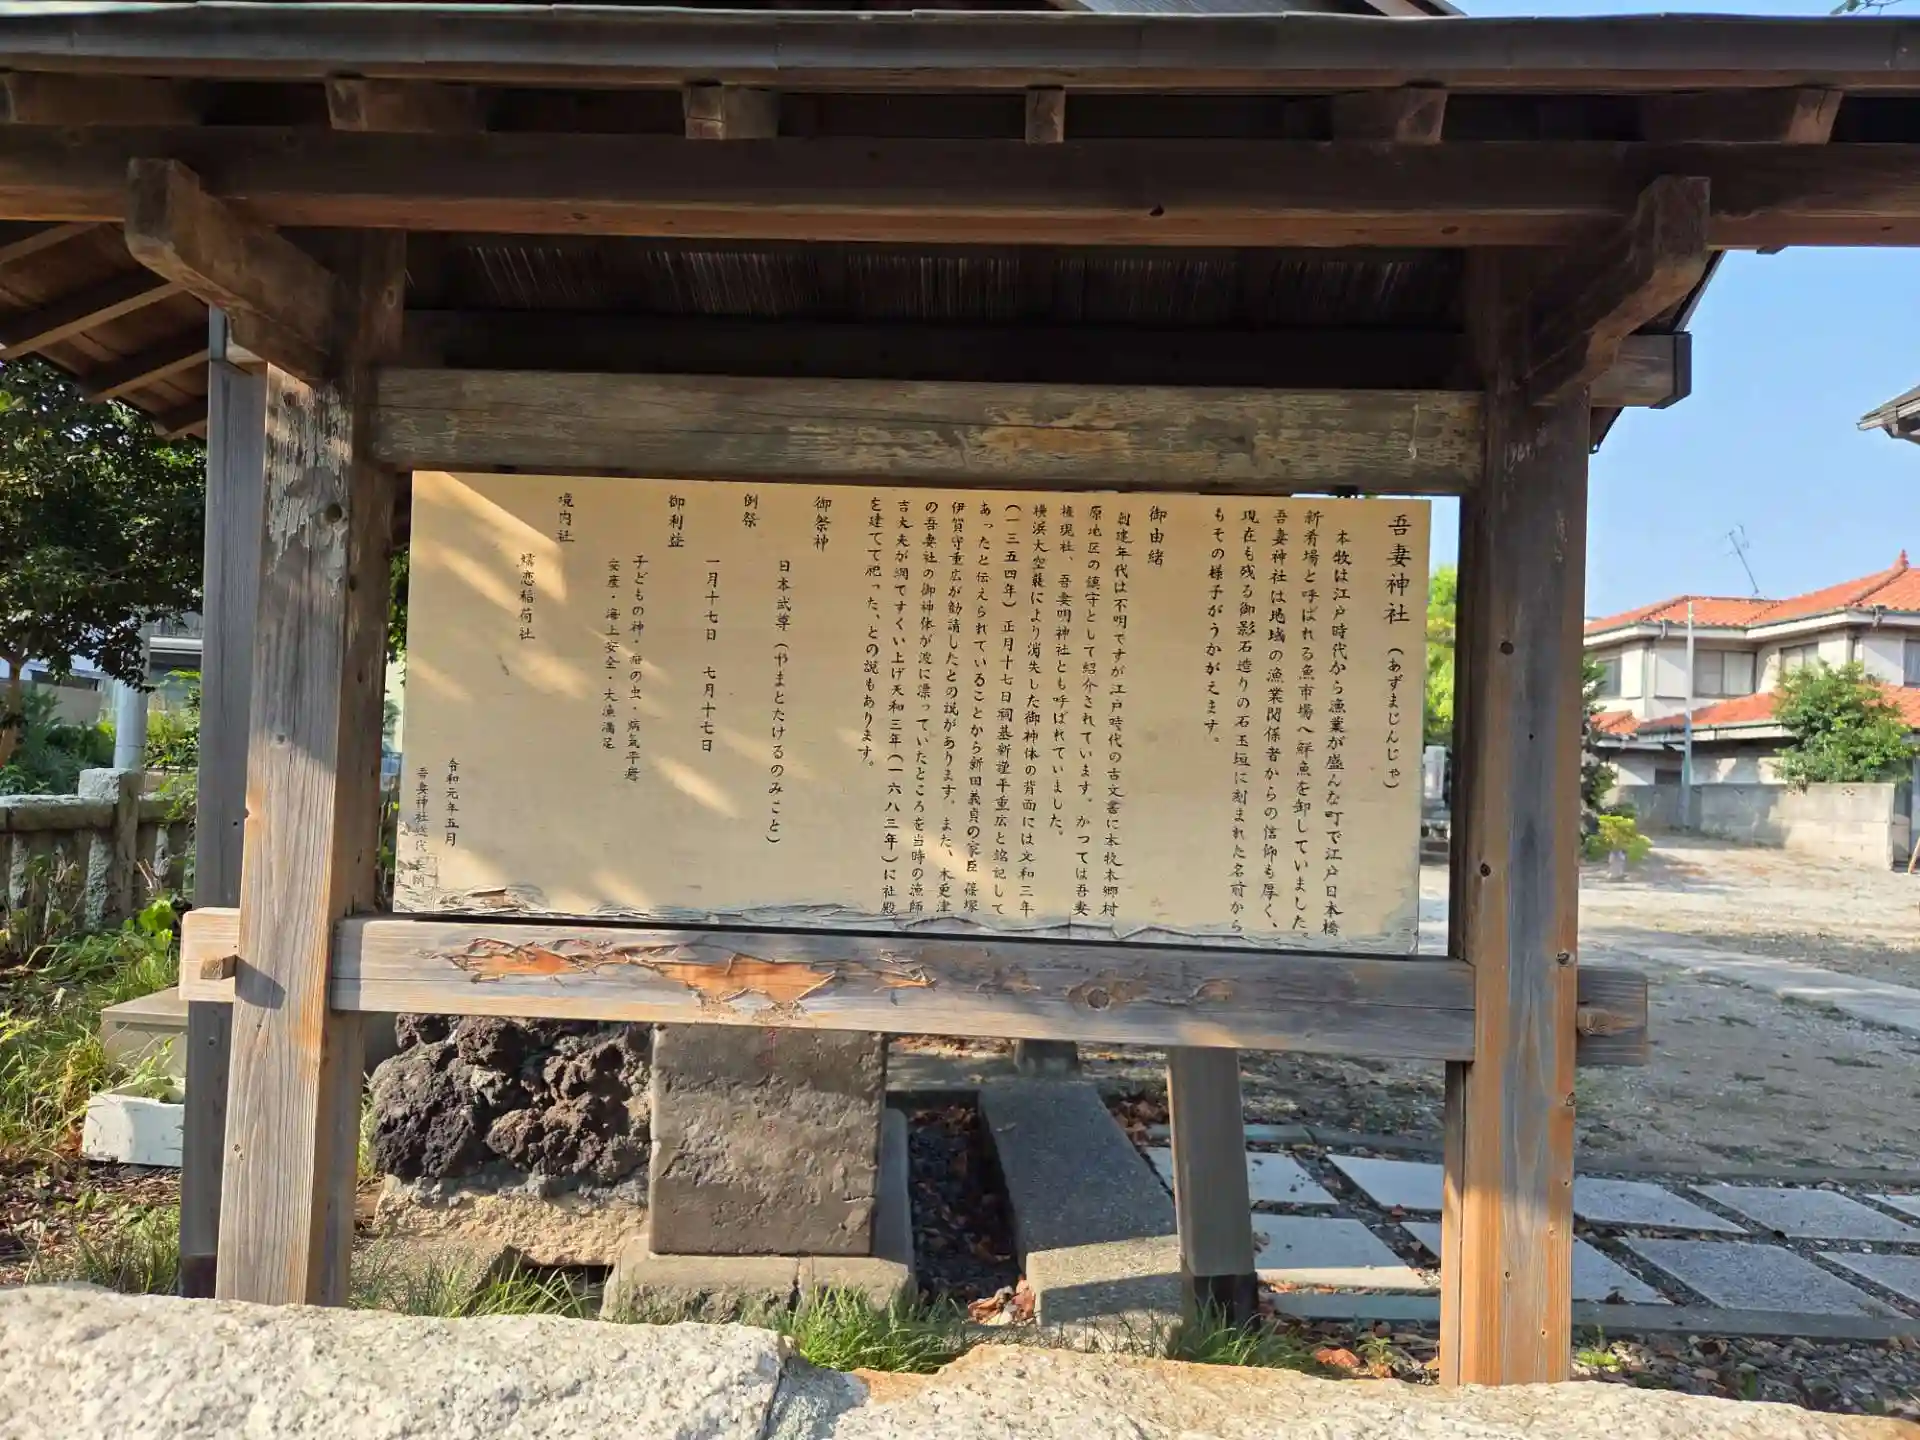 吾妻神社(あずまじんじゃ)
本牧は江戸時代から漁業が盛んな町で江戸日本橋
新肴場と呼ばれる魚市場へ鮮魚を卸していました。
吾妻神社は地域の漁業関係者からの信仰も厚く、
現在も残る御影石造りの石玉垣に刻まれた名前から
もその様子がうかがえます。
御由緒
創建年代は不明ですが江戸時代の古文書に本牧本郷村
原地区の鎮守として紹介されています。かつては吾妻
権現社、吾妻明神社とも呼ばれていました。
横浜大空襲により消失した御神体の背面には文和三年
(一三五四年)正月十七日祠基新謹平重広と銘記して
あったと伝えられていることから新田義貞の家臣篠塚
伊賀守重広が勧請したとの説があります。また、木更津
の吾妻社の御神体が波に漂っていたところを当時の漁師
吉夫夫が網ですくい上げ天和三年(一六八三年)に社殿
を建てて祀った、との説もあります。
御祭神
日本武尊(やまとたけるのみこと)
例祭
一月十七日 七月十七日
御利益
子どもの神・疳の虫・病気平癒
安産・海上安全・大漁満足
境内社
嬉恋稲荷社
令和元年五月
吾妻神社総代奉納